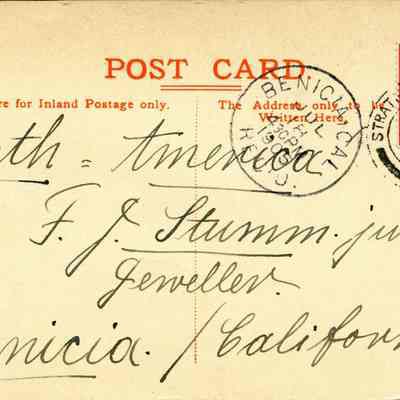 POST CARD
re for Inland Postage only.
The Address only to be
Written Here.
BENICIA, CAL.
REC'D.
JUL
STRAT
th = America
F. J. Stumm. ju
Jeweller.
nicia. / Californ